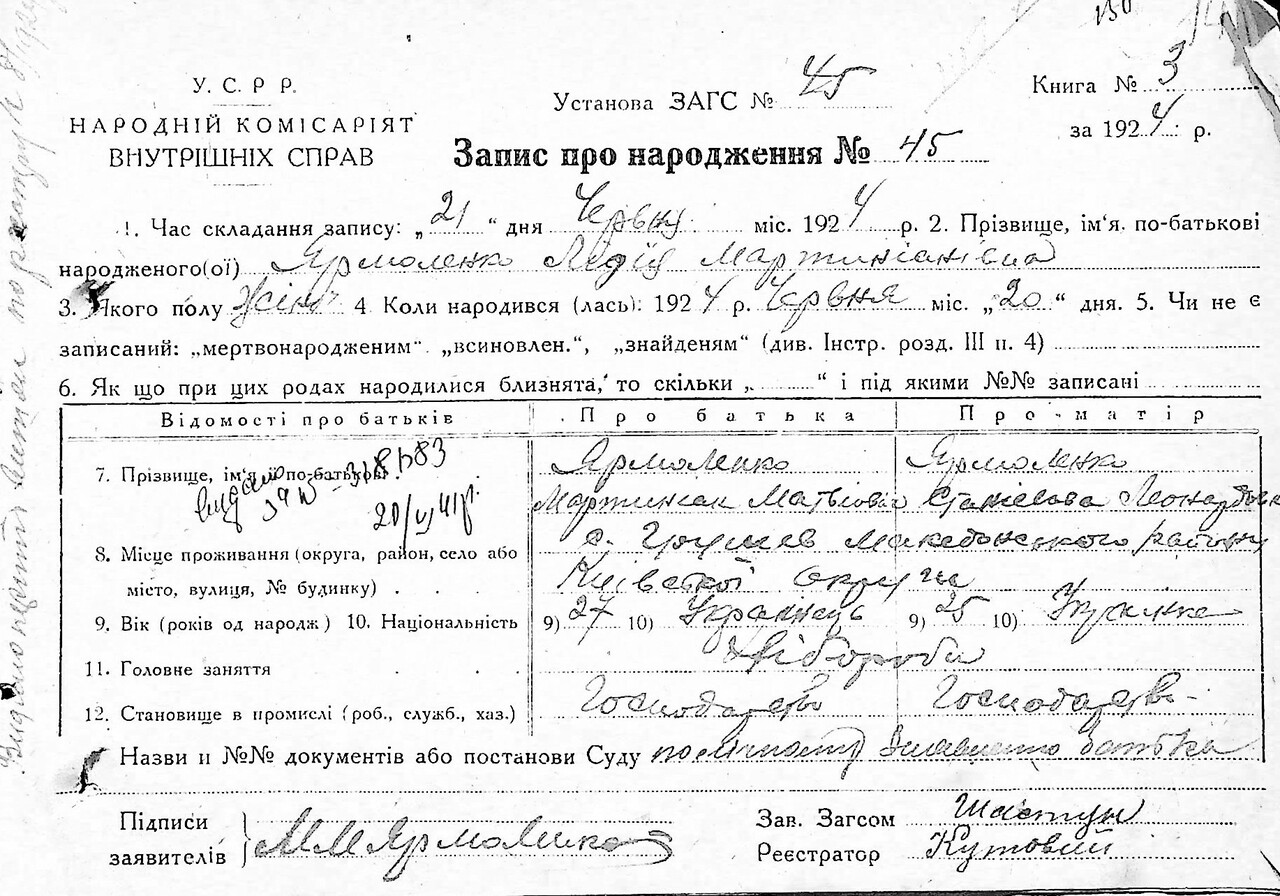 130
У. С. Р Р.
НАРОДНІЙ КОМІСАРІЯТ
ВНУТРІШНІХ СПРАВ
Установа ЗАГС № 45
Книга № 3
за 1924 р.
Запис про народження № 45
1. Час складання запису: „21“ дня Червня міс. 1924 р. 2. Прізвище, ім‘я. по-батькові
народженого(ої) Ярмоленко Лідія Мартиніанівна
3. Якого полу Жіноч 4 Коли народився (лась): 1924 р. Червня міс. „20“ дня. 5. Чи не є
записаний: „мертвонародженим“ „всиновлен.“, „знайденям“ (див. Інстр. розд. III п. 4)
6. Як що при цих родах народилися близнята, то скільки „ “ і під якими №№ записані
Відомості про батьків Про батька Про матір
7. Прізвище, ім‘я й по-батькові Ярмоленко Ярмоленко
Мартиніан Матвіович Леонардівна
20/VI 41р.
8. Місце проживання (округа, район, село або с. Грушев Македонського району
місто, вулиця, № будинку) Київської округи
9. Вік (років од народж) 10. Національність 9) 27 10) Українець 9) 25 10) Українка
11. Головне заняття Хліборобы
12. Становище в промислі (роб., служб., хаз.) Господарство Господарство
Назви и №№ документів або постанови Суду батька
Підписи
заявителів М М Ярмоленко
Зав. Загсом Шастун
Реєстратор Кутовий